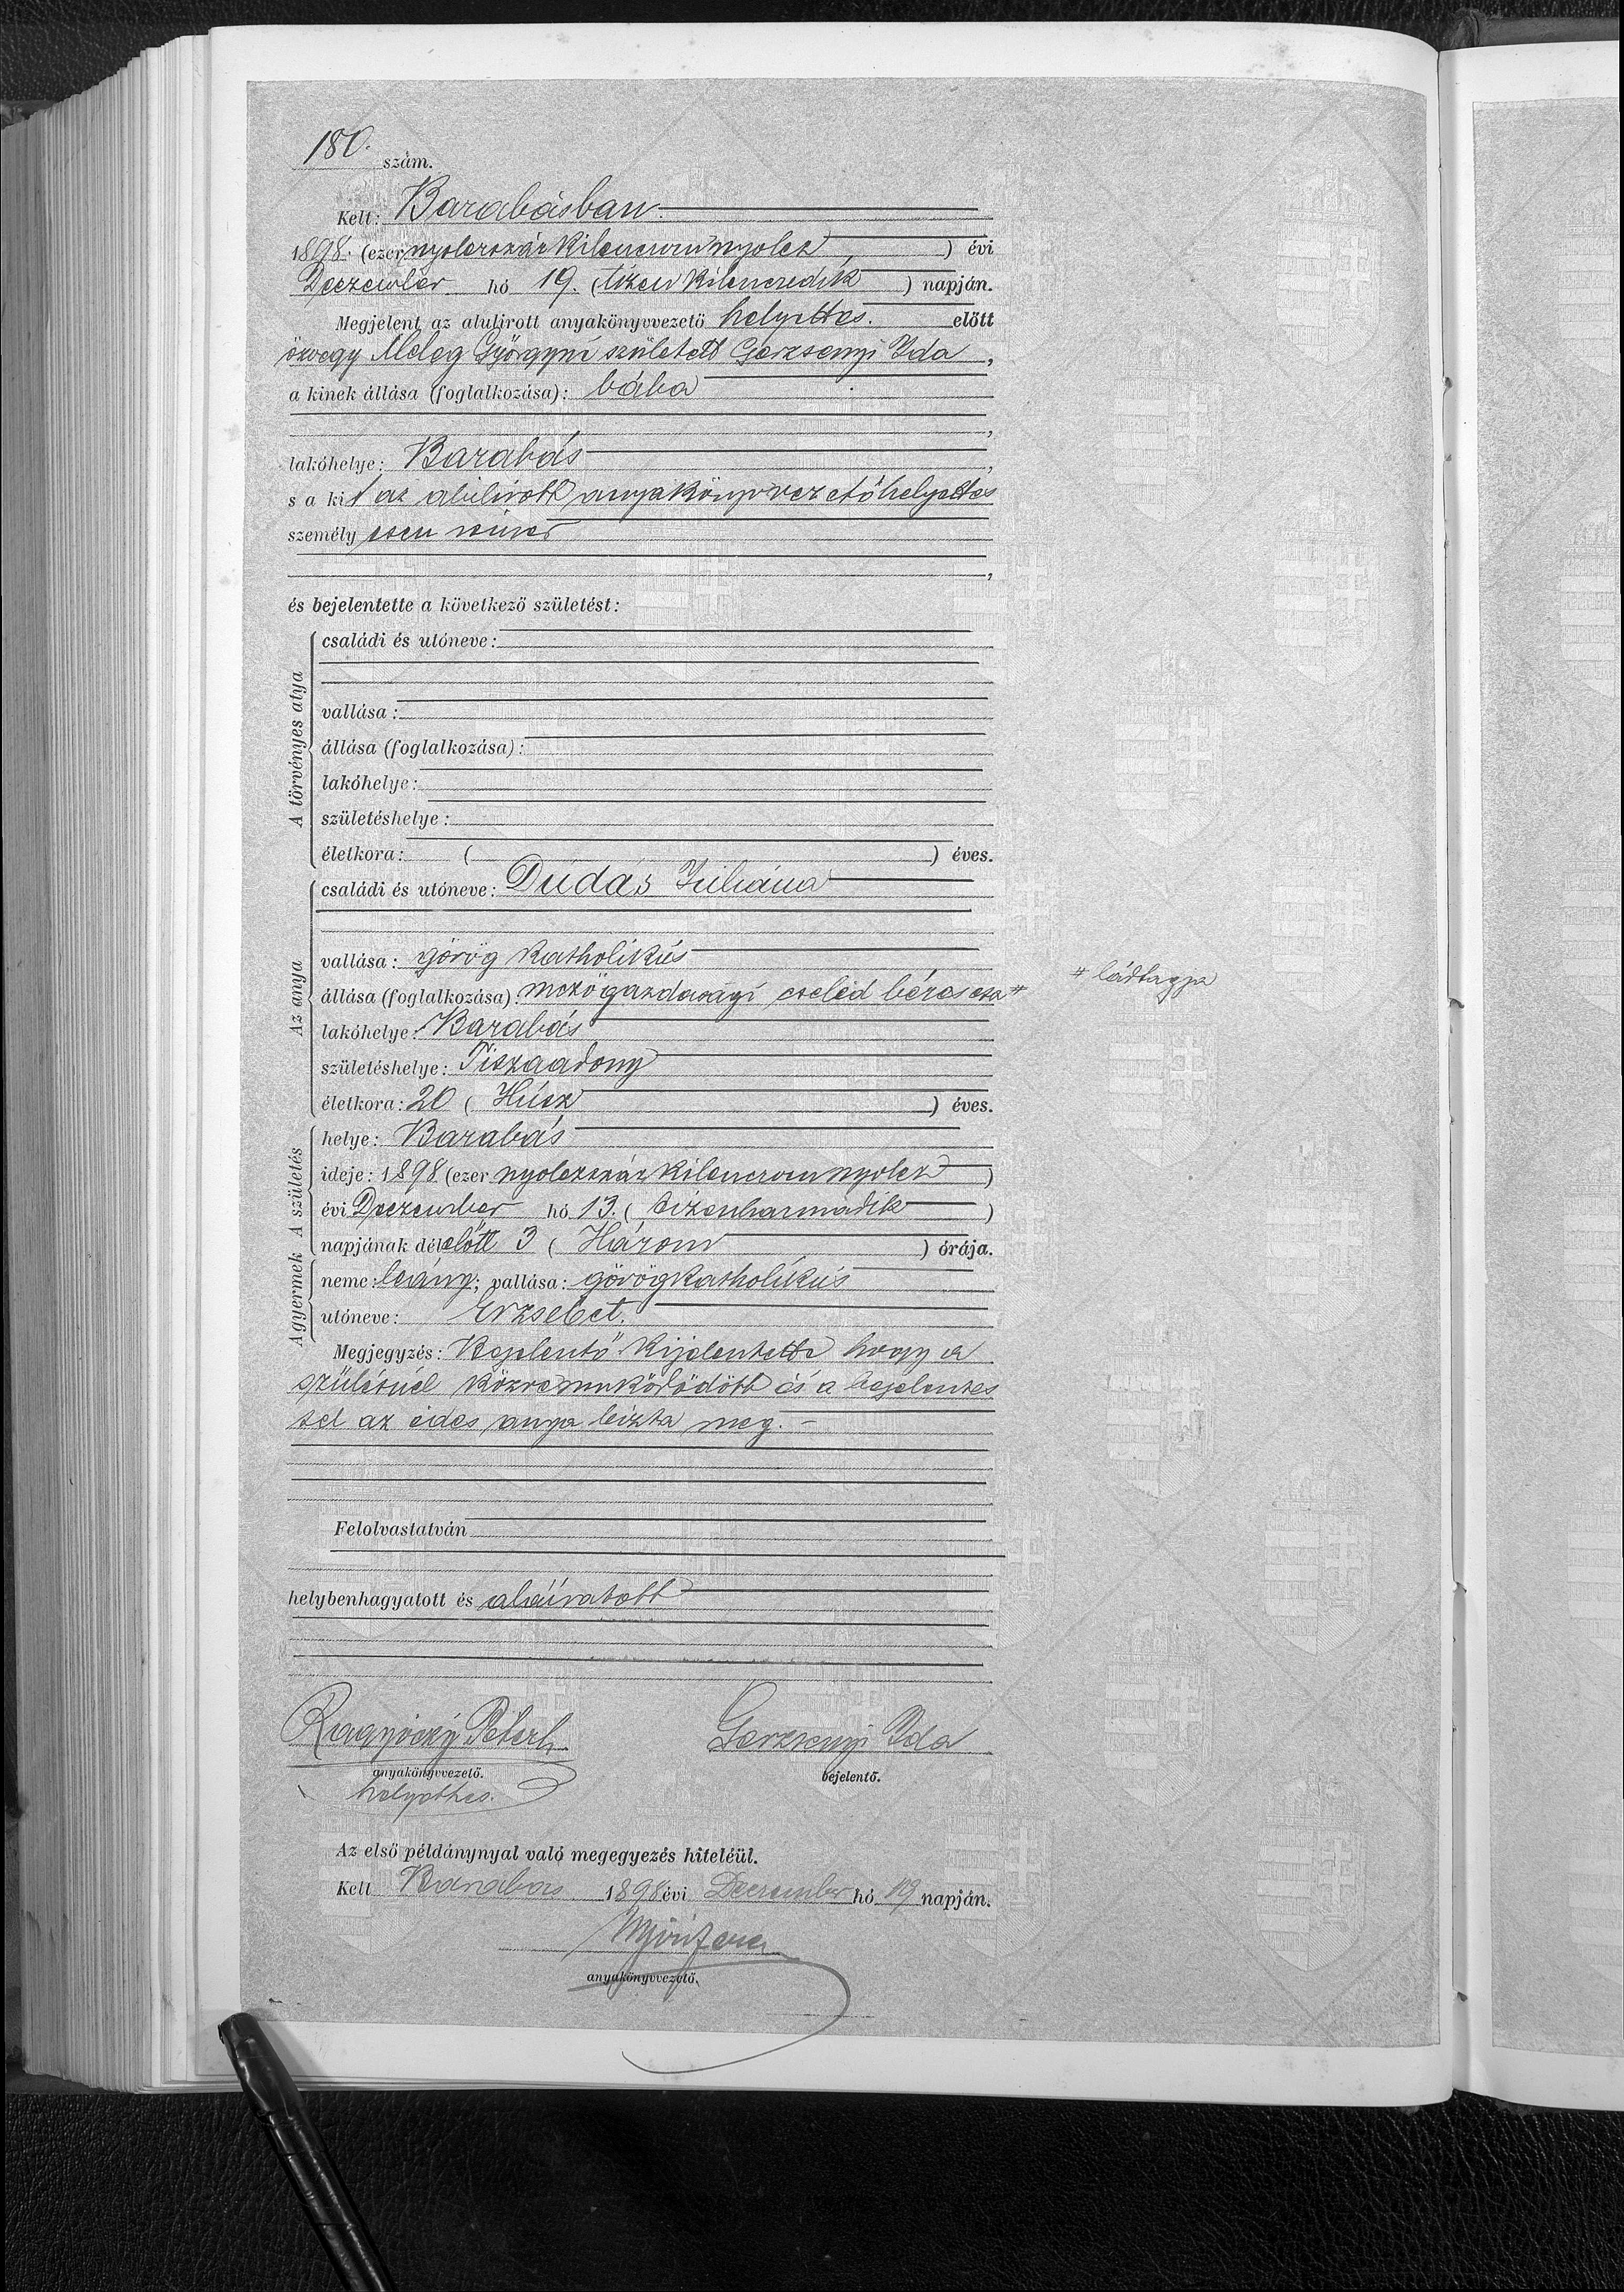 180. szám.
Kelt: Barabásban
1898. (ezer nyolczszáz kilenczven nyolcz) évi
Deczember hó 19. (tizen kilenczedik) napján.
Megjelent az alulirott anyakönyvvezető helyettes. előtt
özvegy Meleg Györgyné született Gerzsenyi Ida,
a kinek állása (foglalkozása): bába
,
lakóhelye: Barabás,
s a kit az alulirott anyakönyvvezetőhelyettes
személyesen ismer
,
és bejelentette a következő születést:
A törvényes atya
családi és utóneve:
vallása:
állása (foglalkozása):
lakóhelye:
születéshelye:
életkora: ( ) éves.
Az anya
családi és utóneve: Dudás Juliána
vallása: görög katholikus
állása (foglalkozása): mezőgazdasági cseléd béres csa #
# ládtagja
lakóhelye: Barabás
születéshelye: Tiszaadony
életkora: 20 (Húsz) éves.
A születés
helye: Barabás
ideje: 1898 (ezer nyolczszáz kilenczven nyolcz)
évi Deczember hó 13. (tizenharmadik)
napjának délelőtt 3 (Három) órája.
A gyermek
neme: leány; vallása: görögkatholikus
utóneve: Erzsébet.
Megjegyzés: Bejelentő kijelentette hogy a
szülésnél közreműködött és a bejelentés
sel az édes anya bizta meg. -
Felolvastatván
helybenhagyatott és aláíratott
Péter Gerzsenyi Ida
anyakönyvvezető. bejelentő.
helyettes.
Az első példánynyal való megegyezés hiteléül.
Kelt Barabas 1898 évi December hó 19 napján.
anyakönyvvezető.